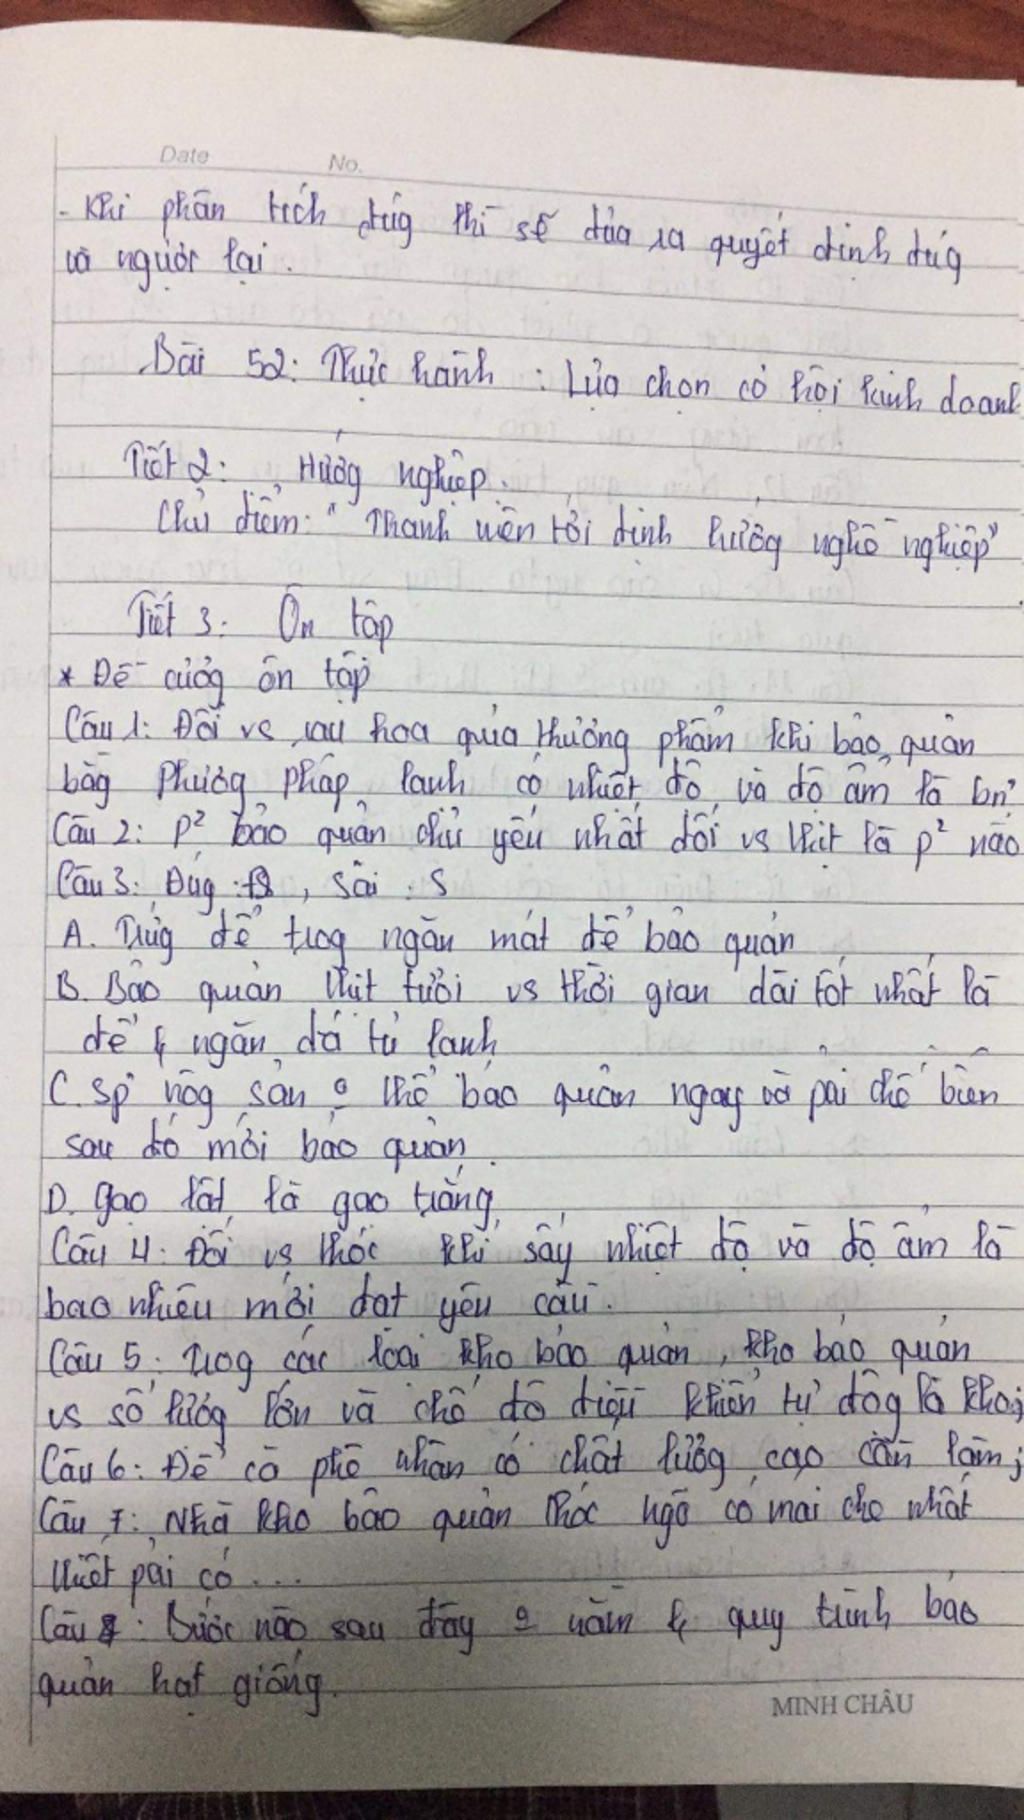 Date No.
- Khi phân tích đúg thì sẽ đưa ra quyết định đúg
và người lại.
Bài 52: Thực hành : Lựa chọn cơ hội kinh doanh
Tiết 2: Hướg nghiệp.
Chủ điểm: " Thanh niên với định hướg nghề nghiệp"
Tiết 3: Ôn tập
* Đề cươg ôn tập
Câu 1: Đối vs rau hoa quả thương phẩm khi bảo quản
bằg phươg pháp lạnh có nhiệt độ và độ ẩm là bn?
Câu 2: p² bảo quản chủ yếu nhất đối vs thịt là p² nào
Câu 3: Đúg : Đ, sai : S
A. Trứg để trog ngăn mát để bảo quản
B. Bảo quản thịt tươi vs thời gian dài tốt nhất là
để ngăn đá tủ lạnh
C. Sp nôg sản thể bảo quản ngay và pải chế biến
sau đó mới bảo quản.
D. gạo lật là gạo trắng
Câu 4: Đối vs thóc khi sấy nhiệt độ và độ ẩm là
bao nhiêu mới đạt yêu cầu.
Câu 5: Trog các loại kho bảo quản, kho bảo quản
vs số lượg lớn và chế độ điều khiển tự độg là kho:
Câu 6: Để cà phê nhân có chất lượg cao cần làm:
Câu 7: Nhà kho bảo quản thóc ngô có mái che nhất
thiết pải có ...
Câu 8: Bước nào sau đây nằm quy trình bảo
quản hạt giống.
MINH CHÂU